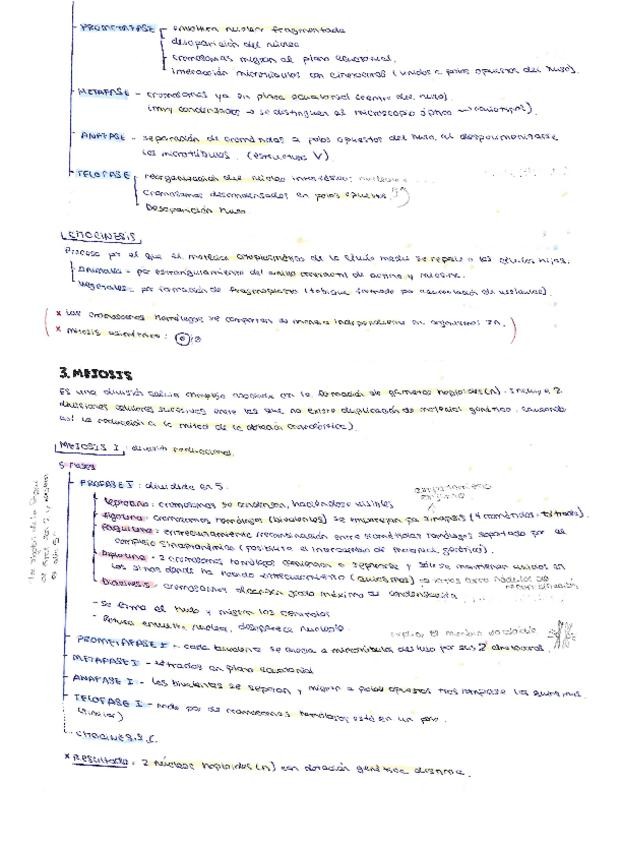 PROMETAFASE - envoltura nuclear fragmentada
desaparición del núcleo
cromosomas migran al plano ecuatorial.
interacción microtúbulos con cinetocoros (unidos a polos opuestos del huso).
METAFASE - cromosomas ya en plano ecuatorial (centro del huso).
(muy condensados → se distinguen al microscopio óptico → cariotipo).
ANAFASE - separación de cromátidas a polos opuestos del huso, al despolimerizarse
los microtúbulos. (estructura V)
TELOFASE reorganización del núcleo interfásico:
Cromosomas descondensados en polos opuestos
Desaparición huso
CITOCINESIS
Proceso por el que el material citoplasmático de la célula madre se reparte a las células hijas.
Animales - por estrangulamiento del anillo contráctil de actina y miosina.
Vegetales: por formación de fragmoplasto (tabique formado por acumulación de vesículas).
* Los cromosomas homólogos se comportan de manera independiente en organismos 2n.
* mitosis asimétrica:
3. MEIOSIS
Es una división celular compleja asociada con la formación de gametos haploides (n). Incluye 2
divisiones celulares sucesivas entre las que no existe duplicación de material genético, causando
así la reducción a la mitad de la dotación cromosómica).
MEIOSIS I: división reduccional.
5 fases
PROFASE I: dividida en 5.
Leptoteno: cromosomas se condensan, haciéndose visibles
Zigoteno: cromosomas homólogos (bivalentes) se emparejan por sinapsis (4 cromátidas: tétradas).
Paquiteno: entrecruzamiento (recombinación entre cromátidas homólogas soportado por el
complejo sinaptonémico (posibilita el intercambio de material genético).
Diploteno - 2 cromosomas homólogos comienzan a separarse y sólo se mantienen unidos en
los sitios donde ha habido entrecruzamiento (quiasmas)
Diacinesis - cromosomas alcanzan grado máximo de condensación
- se forma el huso y migran los centriolos
- Rotura envuelta nuclear, desaparece nucléolo
PROMETAFASE I - cada bivalente se asocia a microtúbulos del huso por sus 2 cinetocoros.
METAFASE I - tétradas en plano ecuatorial
ANAFASE I - los bivalentes se separan y migran a polos opuestos tras romperse los quiasmas.
TELOFASE I - cada par de cromosomas homólogos está en un polo.
(similar)
CITOCINESIS I.
* Resultado: 2 núcleos haploides (n) con dotación genética distinta.